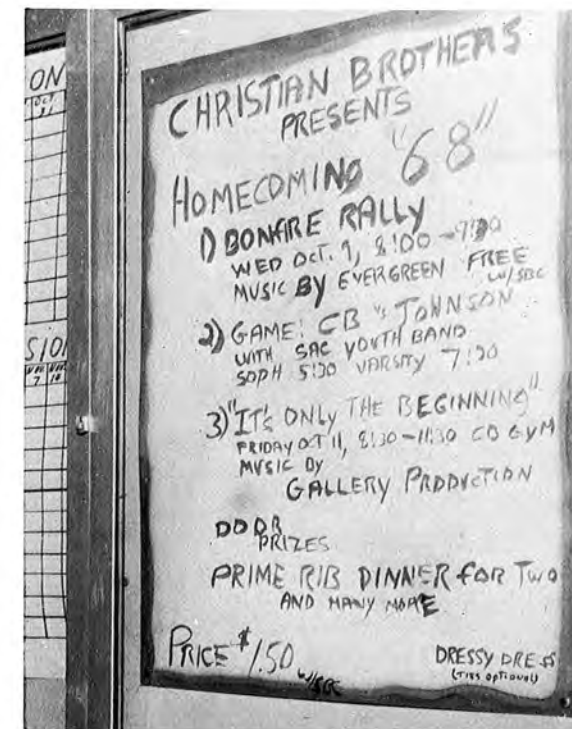 ON
CHRISTIAN BROTHERS
PRESENTS
HOMECOMING "68"
1) BONFIRE RALLY
WED OCT. 9, 8:00 - 9:30
MUSIC BY EVERGREEN FREE
W/SBC
2) GAME: CB vs JOHNSON
WITH SAC YOUTH BAND
SOPH 5:30 VARSITY 7:30
3) "IT'S ONLY THE BEGINNING"
FRIDAY OCT 11, 8:30 - 11:30 CB GYM
MUSIC BY
GALLERY PRODUCTION
DOOR
PRIZES
PRIME RIB DINNER FOR TWO
AND MANY MORE
PRICE $1.50
W/SBC
DRESSY DRESS
(TIES OPTIONAL)